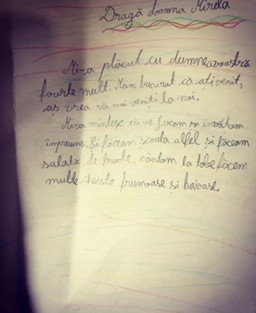 Dragă Doamna Mirela
Mi-a plăcut cu dumneavoastră
foarte mult. M-am bucurat că ați venit,
aș vrea să mai veniți la noi.
împreună. Și făceam școala altfel și făceam
salate de fructe, cântam la tobe făceam
multe chestii frumoase și haioase.